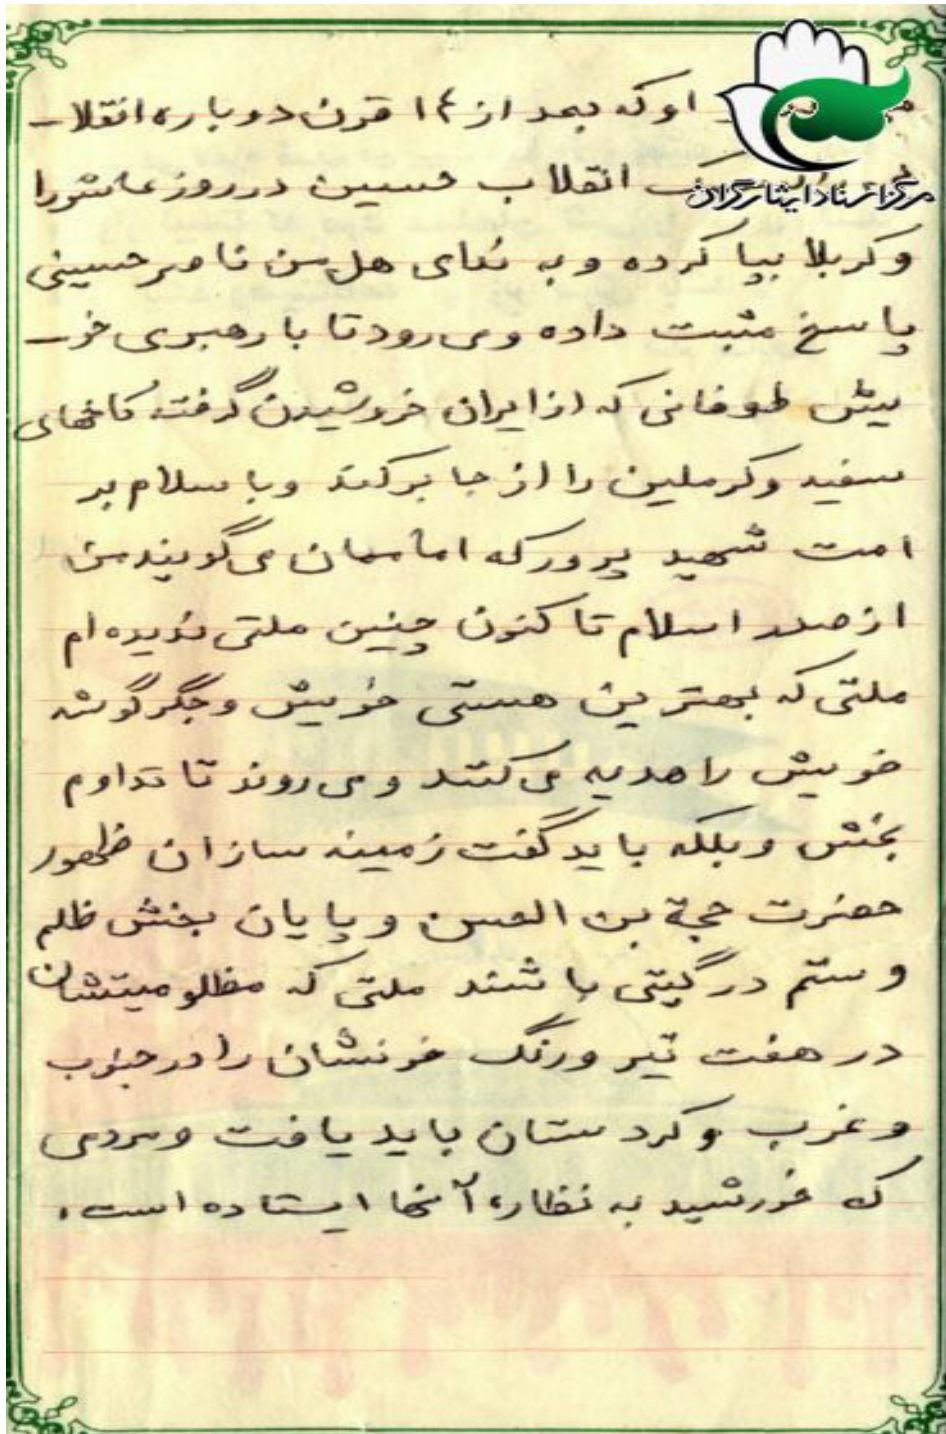 مرکز اسناد ایثارگران
او که بعد از ۱۴ قرن دوباره انقلا
انقلاب حسین در روز عاشورا
و کربلا بپا کرده و به ندای هل من ناصر حسینی
پاسخ مثبت داده و می رود تا با رهبری خو
یش طوفانی که از ایران خروشیدن گرفته کاخهای
سفید و کرملین را از جا برکند و با سلام بر
امت شهید پرور که امامان می گویند من
از صدر اسلام تا کنون چنین ملتی ندیده ام
ملتی که بهترین هستی خویش و جگر گوشه
خویش را هدیه می کنند و می روند تا تداوم
بخش و بلکه باید گفت زمینه سازان ظهور
حضرت حجة بن الحسن و پایان بخش ظلم
و ستم در گیتی باشند ملتی که مظلومیتشان
در هفت تیر و رنگ خونشان را در جنوب
و غرب و کردستان باید یافت و مردمی
که خورشید به نظاره آنها ایستاده است.